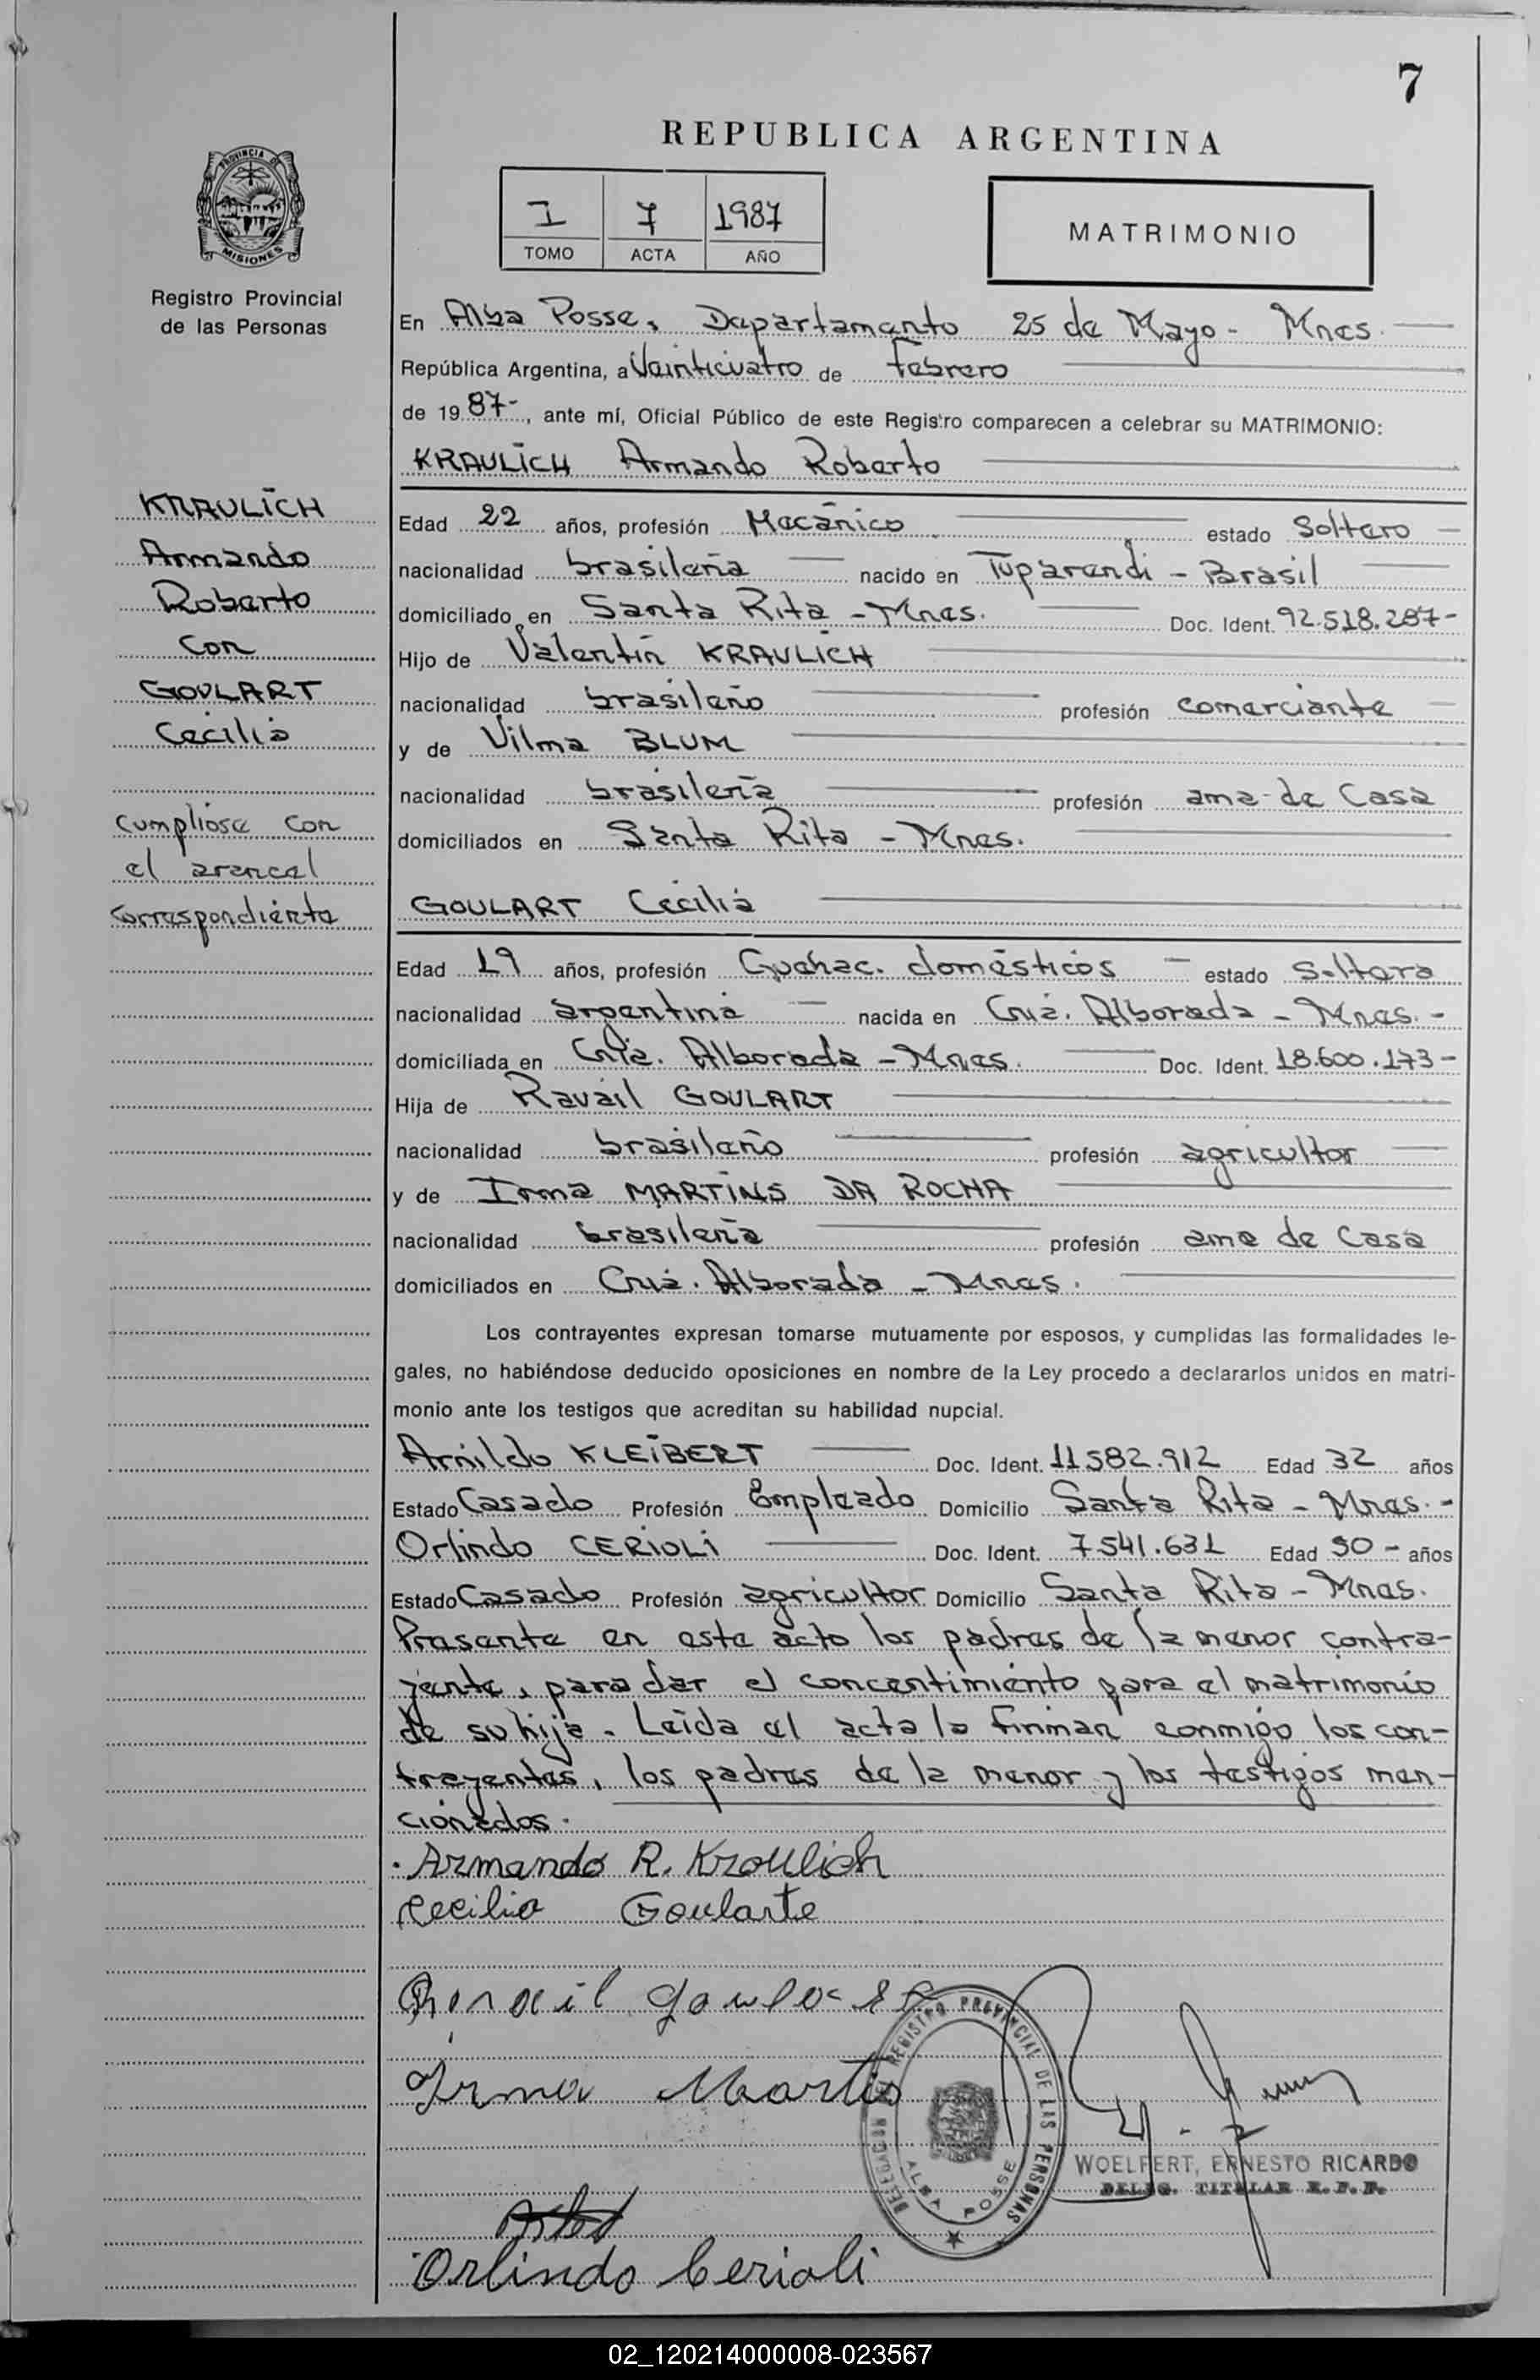 7
REPUBLICA ARGENTINA
I 7 1987
TOMO ACTA AÑO
MATRIMONIO
PROVINCIA DE
MISIONES
Registro Provincial
de las Personas
KRAULICH
Armando
Roberto
Con
GOULART
Cecilia
Cumpliose con
el arancel
correspondiente
En Alba Posse, Departamento 25 de Mayo - Mnes.
República Argentina, a Veinticuatro de Febrero
de 1987-, ante mí, Oficial Público de este Registro comparecen a celebrar su MATRIMONIO:
KRAULICH Armando Roberto
Edad 22 años, profesión Mecánico estado Soltero
nacionalidad brasileña nacido en Tuparendi - Brasil
domiciliado en Santa Rita - Mnes. Doc. Ident. 92.518.287-
Hijo de Valentín KRAULICH
nacionalidad brasileño profesión comerciante
y de Vilma BLUM
nacionalidad brasileña profesión ama de Casa
domiciliados en Santa Rita - Mnes.
GOULART Cecilia
Edad 19 años, profesión Quehac. domésticos estado Soltera
nacionalidad argentina nacida en Cnia. Alborada - Mnes. -
domiciliada en Cnia. Alborada - Mnes. Doc. Ident. 18.600.173-
Hija de Ravail GOULART
nacionalidad brasileño profesión agricultor
y de Irma MARTINS DA ROCHA
nacionalidad brasileña profesión ama de Casa
domiciliados en Cnia. Alborada - Mnes.
Los contrayentes expresan tomarse mutuamente por esposos, y cumplidas las formalidades le-
gales, no habiéndose deducido oposiciones en nombre de la Ley procedo a declararlos unidos en matri-
monio ante los testigos que acreditan su habilidad nupcial.
Arnildo KLEIBERT Doc. Ident. 11.582.912 Edad 32 años
Estado Casado Profesión Empleado Domicilio Santa Rita - Mnes. -
Orlindo CERIOLI Doc. Ident. 7.541.631 Edad 50 - años
Estado Casado Profesión agricultor Domicilio Santa Rita - Mnes.
Presente en este acto los padres de la menor contra-
yente, para dar el concentimiento para el matrimonio
de su hija. Leida el acta la firman conmigo los con-
trayentes, los padres de la menor y los testigos men-
cionados.
Armando R. Kraulich
Cecilia Goularte
Goularte
Irma Martis
DELEGACION DEL REGISTRO PROVINCIAL DE LAS PERSONAS
ALBA POSSE
WOELFERT, ERNESTO RICARDO
DELEG. TITULAR R.P.P.
Orlindo Cerioli
02_120214000008-023567